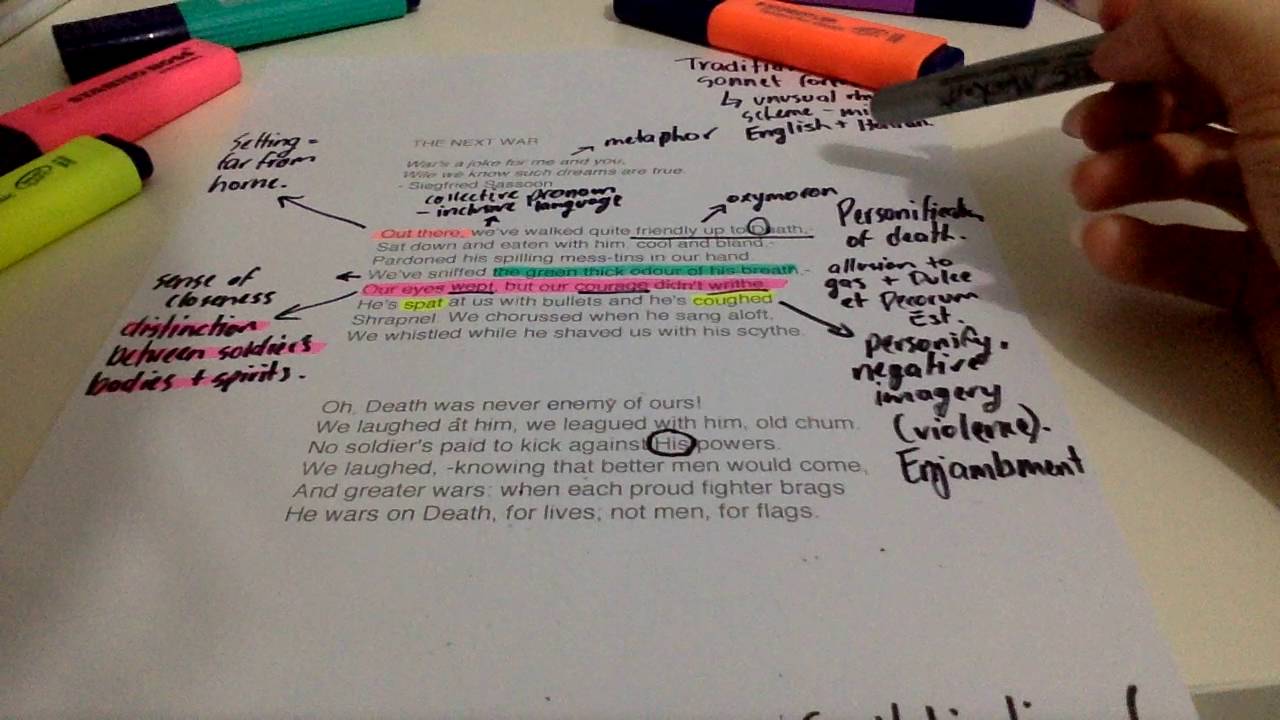 Traditi
sonnet for
↳ unusual rh
scheme - mi
English + Italian.
THE NEXT WAR
→ metaphor
War's a joke for me and you,
Wile we know such dreams are true.
- Siegfried Sassoon
Setting =
far from
home.
collective pronoun
- inclusive language
oxymoron
Out there, we've walked quite friendly up to Death,-
Sat down and eaten with him, cool and bland,-
Pardoned his spilling mess-tins in our hand.
We've sniffed the green thick odour of his breath,-
Our eyes wept, but our courage didn't writhe.
He's spat at us with bullets and he's coughed
Shrapnel. We chorussed when he sang aloft,
We whistled while he shaved us with his scythe.
sense of
closeness
distinction
between soldiers
bodies + spirits.
Personification
of death.
allusion to
gas + Dulce
et Decorum
Est.
personify.
negative
imagery
(violence).
Enjambment
Oh, Death was never enemy of ours!
We laughed at him, we leagued with him, old chum.
No soldier's paid to kick against His powers.
We laughed, -knowing that better men would come,
And greater wars: when each proud fighter brags
He wars on Death, for lives; not men, for flags.